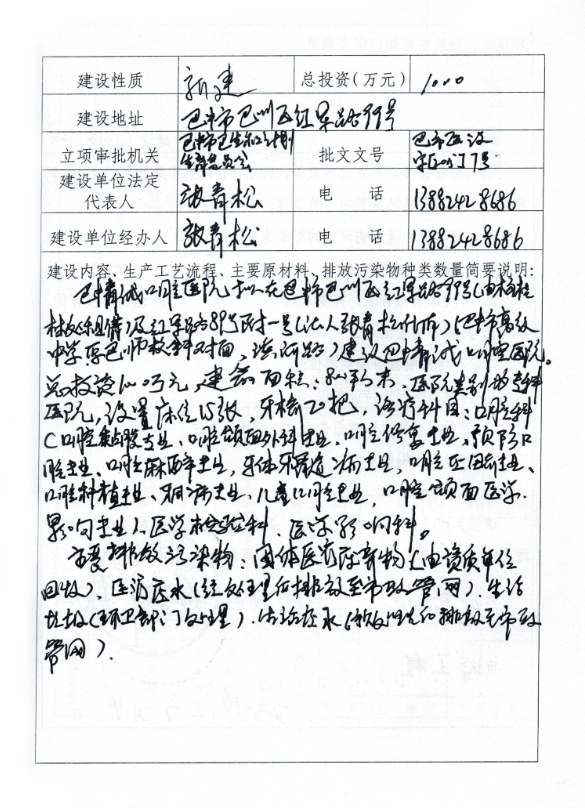 建设性质 新建 总投资(万元) 1000
建设地址 巴中市巴州区红军路99号
立项审批机关 巴中市卫生和计划生育委员会 批文文号
建设单位法定代表人 张青松 电话 13882428686
建设单位经办人 张青松 电话 13882428686
建设内容、生产工艺流程、主要原材料、排放污染物种类数量简要说明:
巴中精诚口腔医院拟在巴中市巴州区红军路99号
及红军路89号附一号(法人张青松所有)(巴中高级
中学原巴师校斜对面,滨河路)建设巴中精诚口腔医院。
总投资1000万元,建筑面积:平方米,医院类别为专科
医院,设置床位15张,牙椅20把,诊疗科目:口腔科
(口腔黏膜专业、口腔颌面外科专业、口腔修复专业、预防口
腔专业、口腔麻醉专业,牙体牙髓病专业,口腔正畸专业、
口腔种植专业、牙周病专业、儿童口腔专业,口腔颌面医学
影像专业)、医学检验科、医学影像科。
主要排放污染物:固体医疗废弃物(由资质单位
回收)、医疗废水(经处理后排放至市政管网)、生活
垃圾(环卫部门处理)、生活废水(排放至市政
管网)。